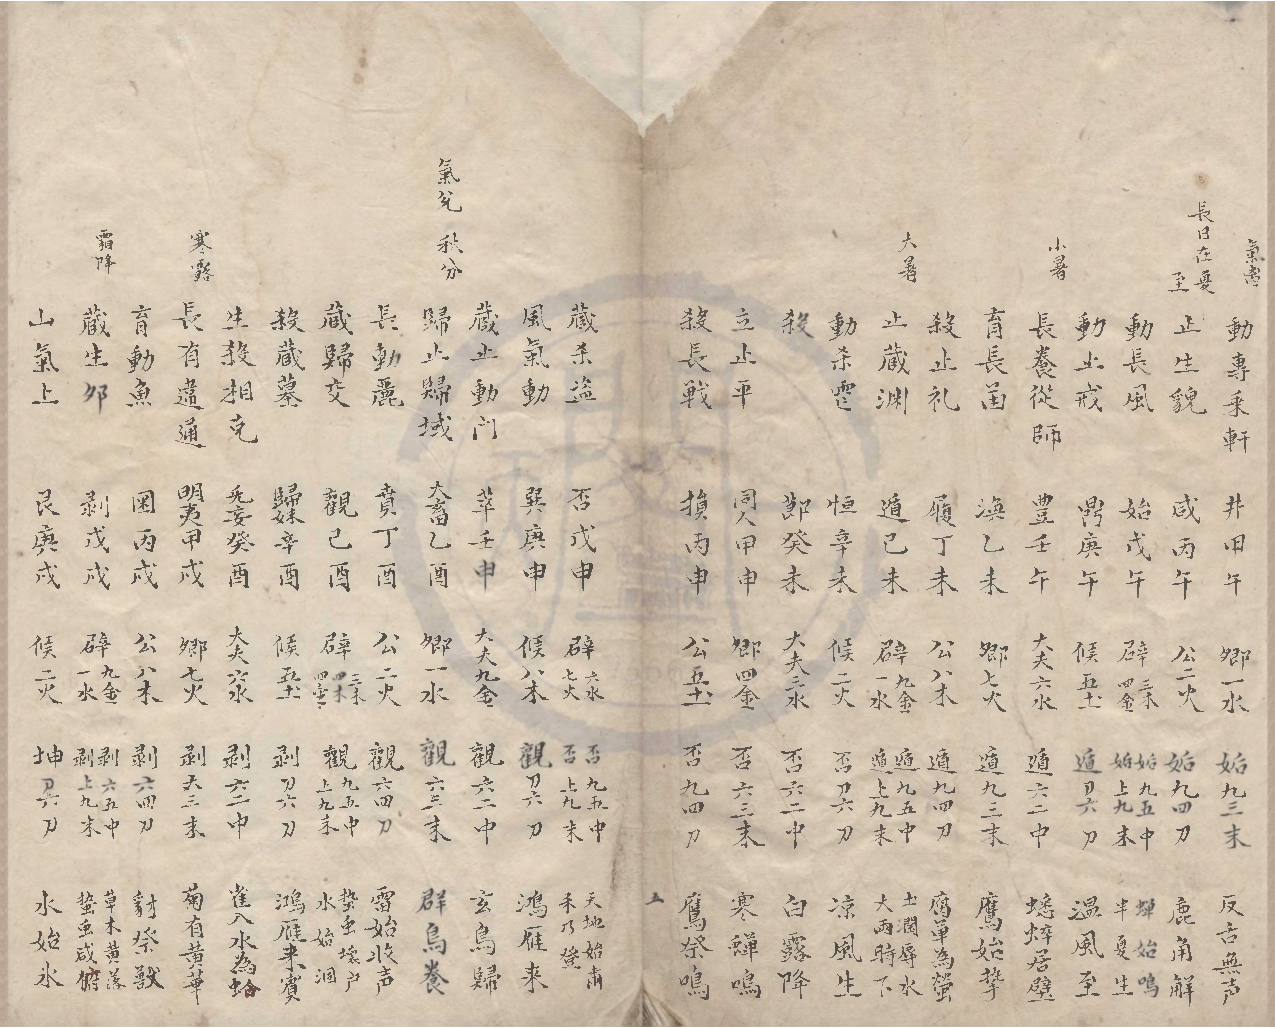 動專乗軒 井甲午 卿一水 姤九三末 反舌無声
長日在夏至
止生貌 咸丙午 公二火 姤九四刀 鹿角解
動長風 始戊午 辟三木四金九金 姤九五中姤上九末 蟬始鳴半夏生
動止戒 鼎庚午 候五土 遁刀六刀 温風至
小暑
長養從師 豊壬午 大夫六水 遁六二中 蟋蟀居壁
育長函 渙乙未 卿七火 遁九三末 鷹始摯
殺止礼 履丁未 公八木 遁九四刀 腐草為螢
大暑
止蔵渊 遁己未 辟九金一水 遁九五中遁上九末 土潤辱水大雨時下
動杀雷 恒辛未 候二火 否刀六刀 凉風生
殺 節癸未 大夫三水 否六二中 白露降
立止平 同人甲申 卿四金 否六三末 寒蟬鳴
殺長戦 損丙申 公五土 否九四刀 鷹祭鳴
五
蔵杀盗 否戊申 辟六水七火 否九五中否上九末 天地始肅禾乃登
風氣動 巽庚申 候八木 觀刀六刀 鴻雁来
蔵止動门 萃壬申 大夫九金 觀六二中 玄鳥歸
氣兊 秋分
歸止歸域 大畜乙酉 卿一水 觀六三末 群鳥養
長動麗 賁丁酉 公二火 觀六四刀 雷始收声
蔵歸交 觀己酉 辟三木四金 觀九五中上九末 蟄虫壊户水始涸
殺蔵墓 歸妹辛酉 候五土 剥刀六刀 鴻雁来賓
生殺相克 无妄癸酉 大夫六水 剥六二中 雀入水為蛤
寒露
長有違通 明夷甲戌 卿七火 剥六三末 菊有黄華
育動魚 困丙戌 公八木 剥六四刀 豺祭獸
霜降
蔵生夘 剥戊戌 辟九金一水 剥六五中剥上九末 草木黄落蟄虫咸俯
山氣上 艮庚戌 候二火 坤刀六刀 水始氷